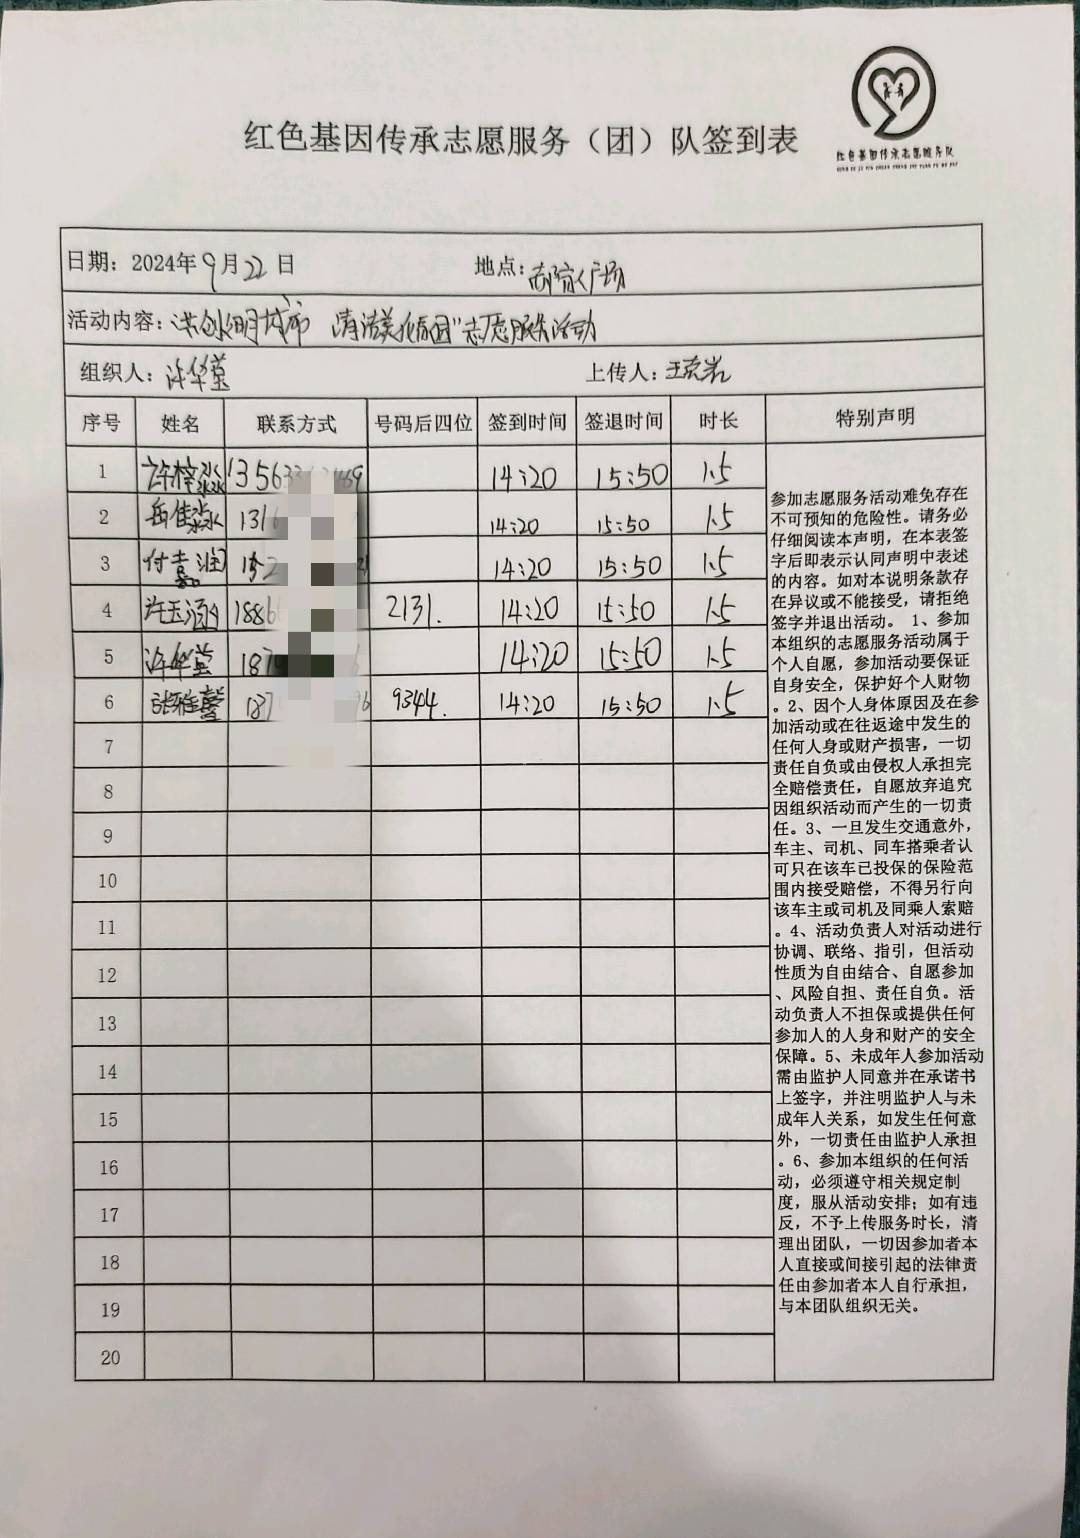 红色基因传承志愿服务（团）队签到表
红色基因传承志愿服务队
日期：2024年9月22日 地点：广场
活动内容： 城市 清洁美化 "志愿服务活动
组织人：许华莹 上传人：王
序号 姓名 联系方式 号码后四位 签到时间 签退时间 时长 特别声明
1 许梓淼 13563 69 14:20 15:50 1.5
2 岳佳淼 131 14:20 15:50 1.5
3 付嘉润 14:20 15:50 1.5
4 许玉涵 1886 2131. 14:20 15:50 1.5
5 许华莹 187 14:20 15:50 1.5
6 张雅馨 137 96 9344. 14:20 15:50 1.5
7
8
9
10
11
12
13
14
15
16
17
18
19
20
参加志愿服务活动难免存在
不可预知的危险性。请务必
仔细阅读本声明，在本表签
字后即表示认同声明中表述
的内容。如对本说明条款存
在异议或不能接受，请拒绝
签字并退出活动。 1、参加
本组织的志愿服务活动属于
个人自愿，参加活动要保证
自身安全，保护好个人财物
。2、因个人身体原因及在参
加活动或在往返途中发生的
任何人身或财产损害，一切
责任自负或由侵权人承担完
全赔偿责任，自愿放弃追究
因组织活动而产生的一切责
任。3、一旦发生交通意外，
车主、司机、同车搭乘者认
可只在该车已投保的保险范
围内接受赔偿，不得另行向
该车主或司机及同乘人索赔
。4、活动负责人对活动进行
协调、联络、指引，但活动
性质为自由结合、自愿参加
、风险自担、责任自负。活
动负责人不担保或提供任何
参加人的人身和财产的安全
保障。5、未成年人参加活动
需由监护人同意并在承诺书
上签字，并注明监护人与未
成年人关系，如发生任何意
外，一切责任由监护人承担
。6、参加本组织的任何活
动，必须遵守相关规定制
度，服从活动安排；如有违
反，不予上传服务时长，清
理出团队，一切因参加者本
人直接或间接引起的法律责
任由参加者本人自行承担，
与本团队组织无关。